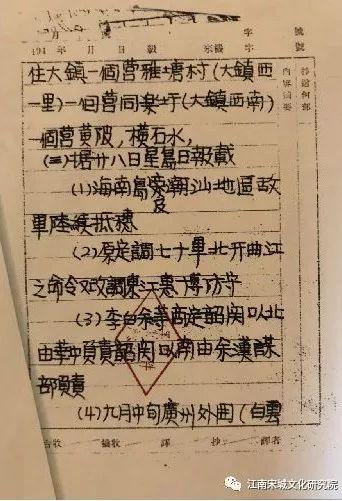 字 號
194 年 月 日 字 號
住大鎮一個营雅塘村(大鎮西
一里)一個营同楽圩(大鎮西南)
一個营黄陂,横石水,
(三)据廿八日星島日報載
(1)海南島及潮汕地區敌
軍陸續抵穗
(2)原定調七十軍北开曲江
之命令又改調東江惠博防守
(3)李白余等商定韶関以北
由華中負責韶関以南由余漢謀
部負責
(4)九月中旬廣州外囲(白雲
台收 機收 譯 抄 譯者
江南宋城文化研究院